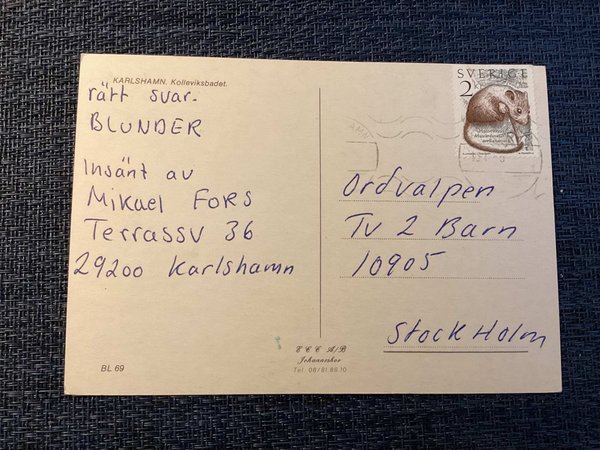 KARLSHAMN. Kolleviksbadet.
rätt svar.
BLUNDER
Insänt av
Mikael FORS
Terrassv 36
29200 Karlshamn
BL 69
E C E A/B
Johanneshov
Tel. 08/81.88.10
SVERIGE
2
Ordvalpen
Tv 2 Barn
10905
Stockholm